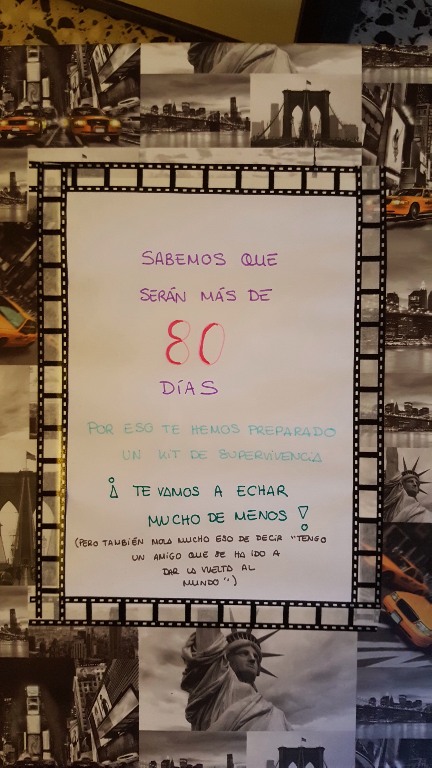 SABEMOS QUE
SERÁN MÁS DE
80
DÍAS
POR ESO TE HEMOS PREPARADO
UN KIT DE SUPERVIVENCIA
¡ TE VAMOS A ECHAR
MUCHO DE MENOS !
(PERO TAMBIÉN MOLA MUCHO ESO DE DECIR "TENGO
UN AMIGO QUE SE HA IDO A
DAR LA VUELTA AL
MUNDO")